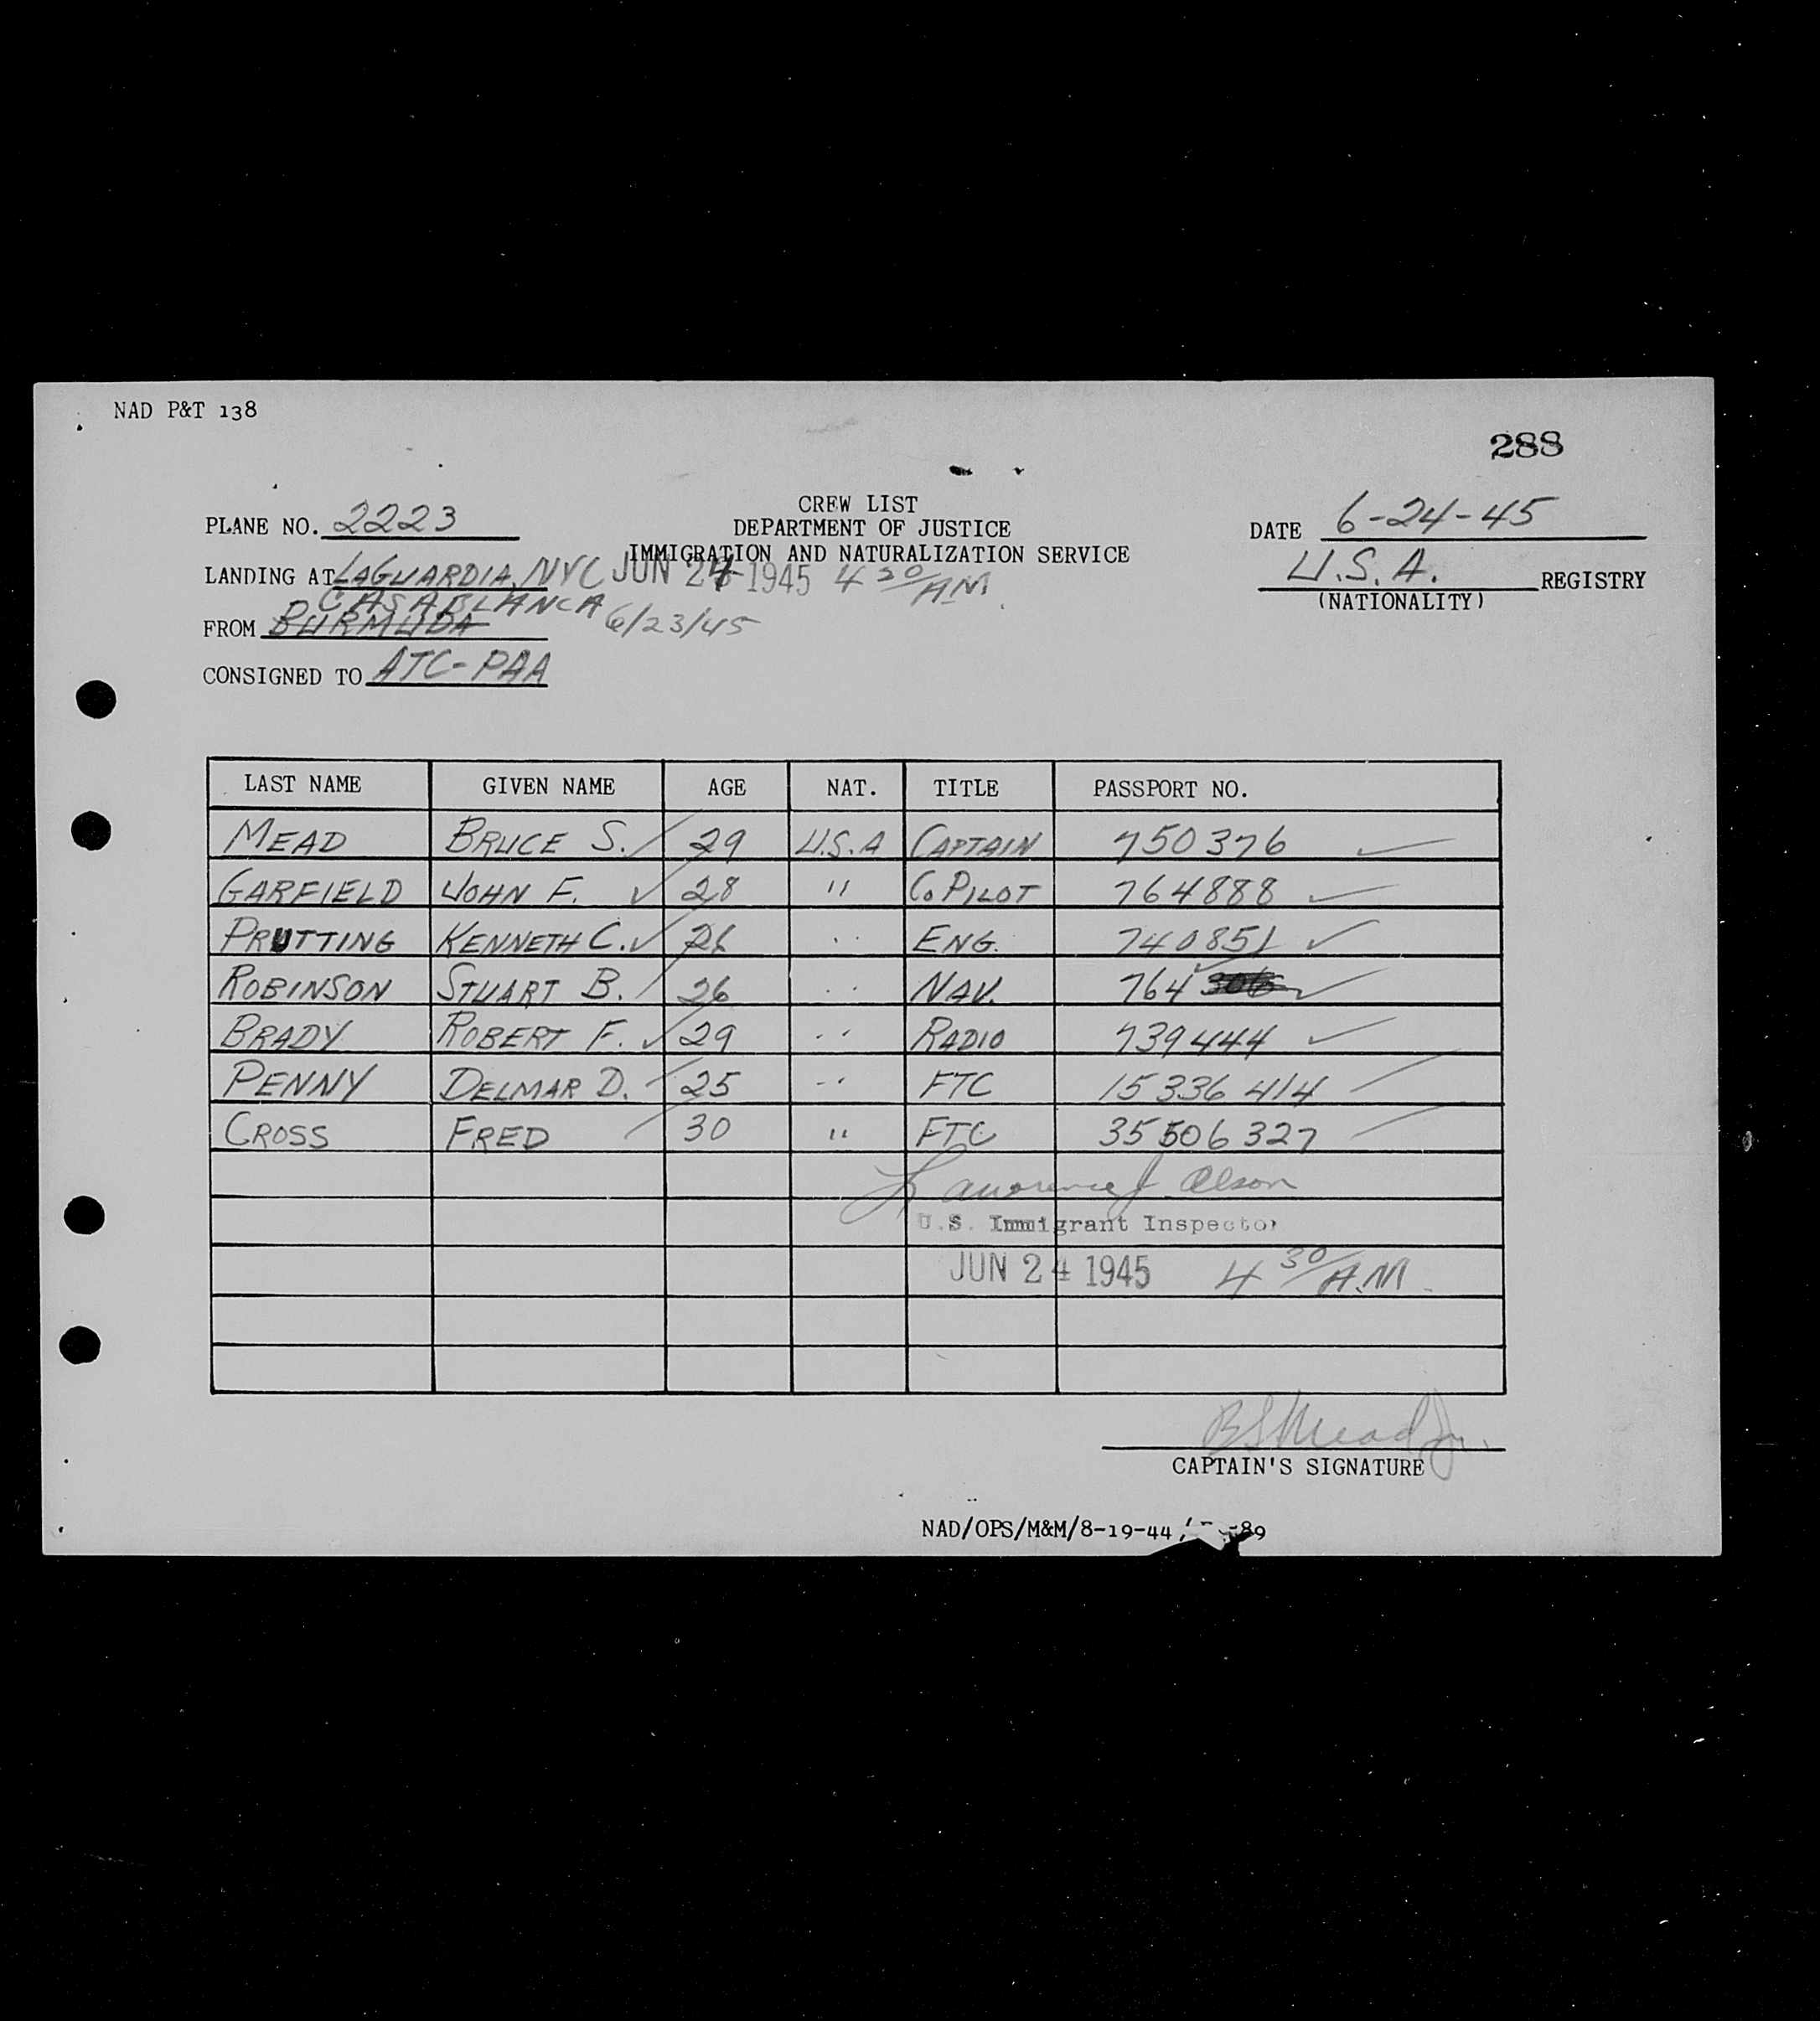 NAD P&T 138
288
CREW LIST
DEPARTMENT OF JUSTICE
IMMIGRATION AND NATURALIZATION SERVICE
PLANE NO. 2223
DATE 6-24-45
LANDING AT LAGUARDIA, NYC JUN 24 1945 4 30/AM
U.S.A. REGISTRY
(NATIONALITY)
CASABLANCA 6/23/45
FROM BURMUDA
CONSIGNED TO ATC-PAA
LAST NAME GIVEN NAME AGE NAT. TITLE PASSPORT NO.
MEAD BRUCE S. 29 U.S.A CAPTAIN 750376
GARFIELD JOHN F. 28 " CO PILOT 764888
PRUTTING KENNETH C. 26 " ENG. 740851
ROBINSON STUART B. 26 " NAV. 764
BRADY ROBERT F. 29 " RADIO 739444
PENNY DELMAR D. 25 " FTC 15336414
CROSS FRED 30 " FTC 35506327
Lawrence J Olson
U.S. Immigrant Inspector
JUN 24 1945 4 30/A.M.
BSMead Jr.
CAPTAIN'S SIGNATURE
NAD/OPS/M&M/8-19-44/ 89